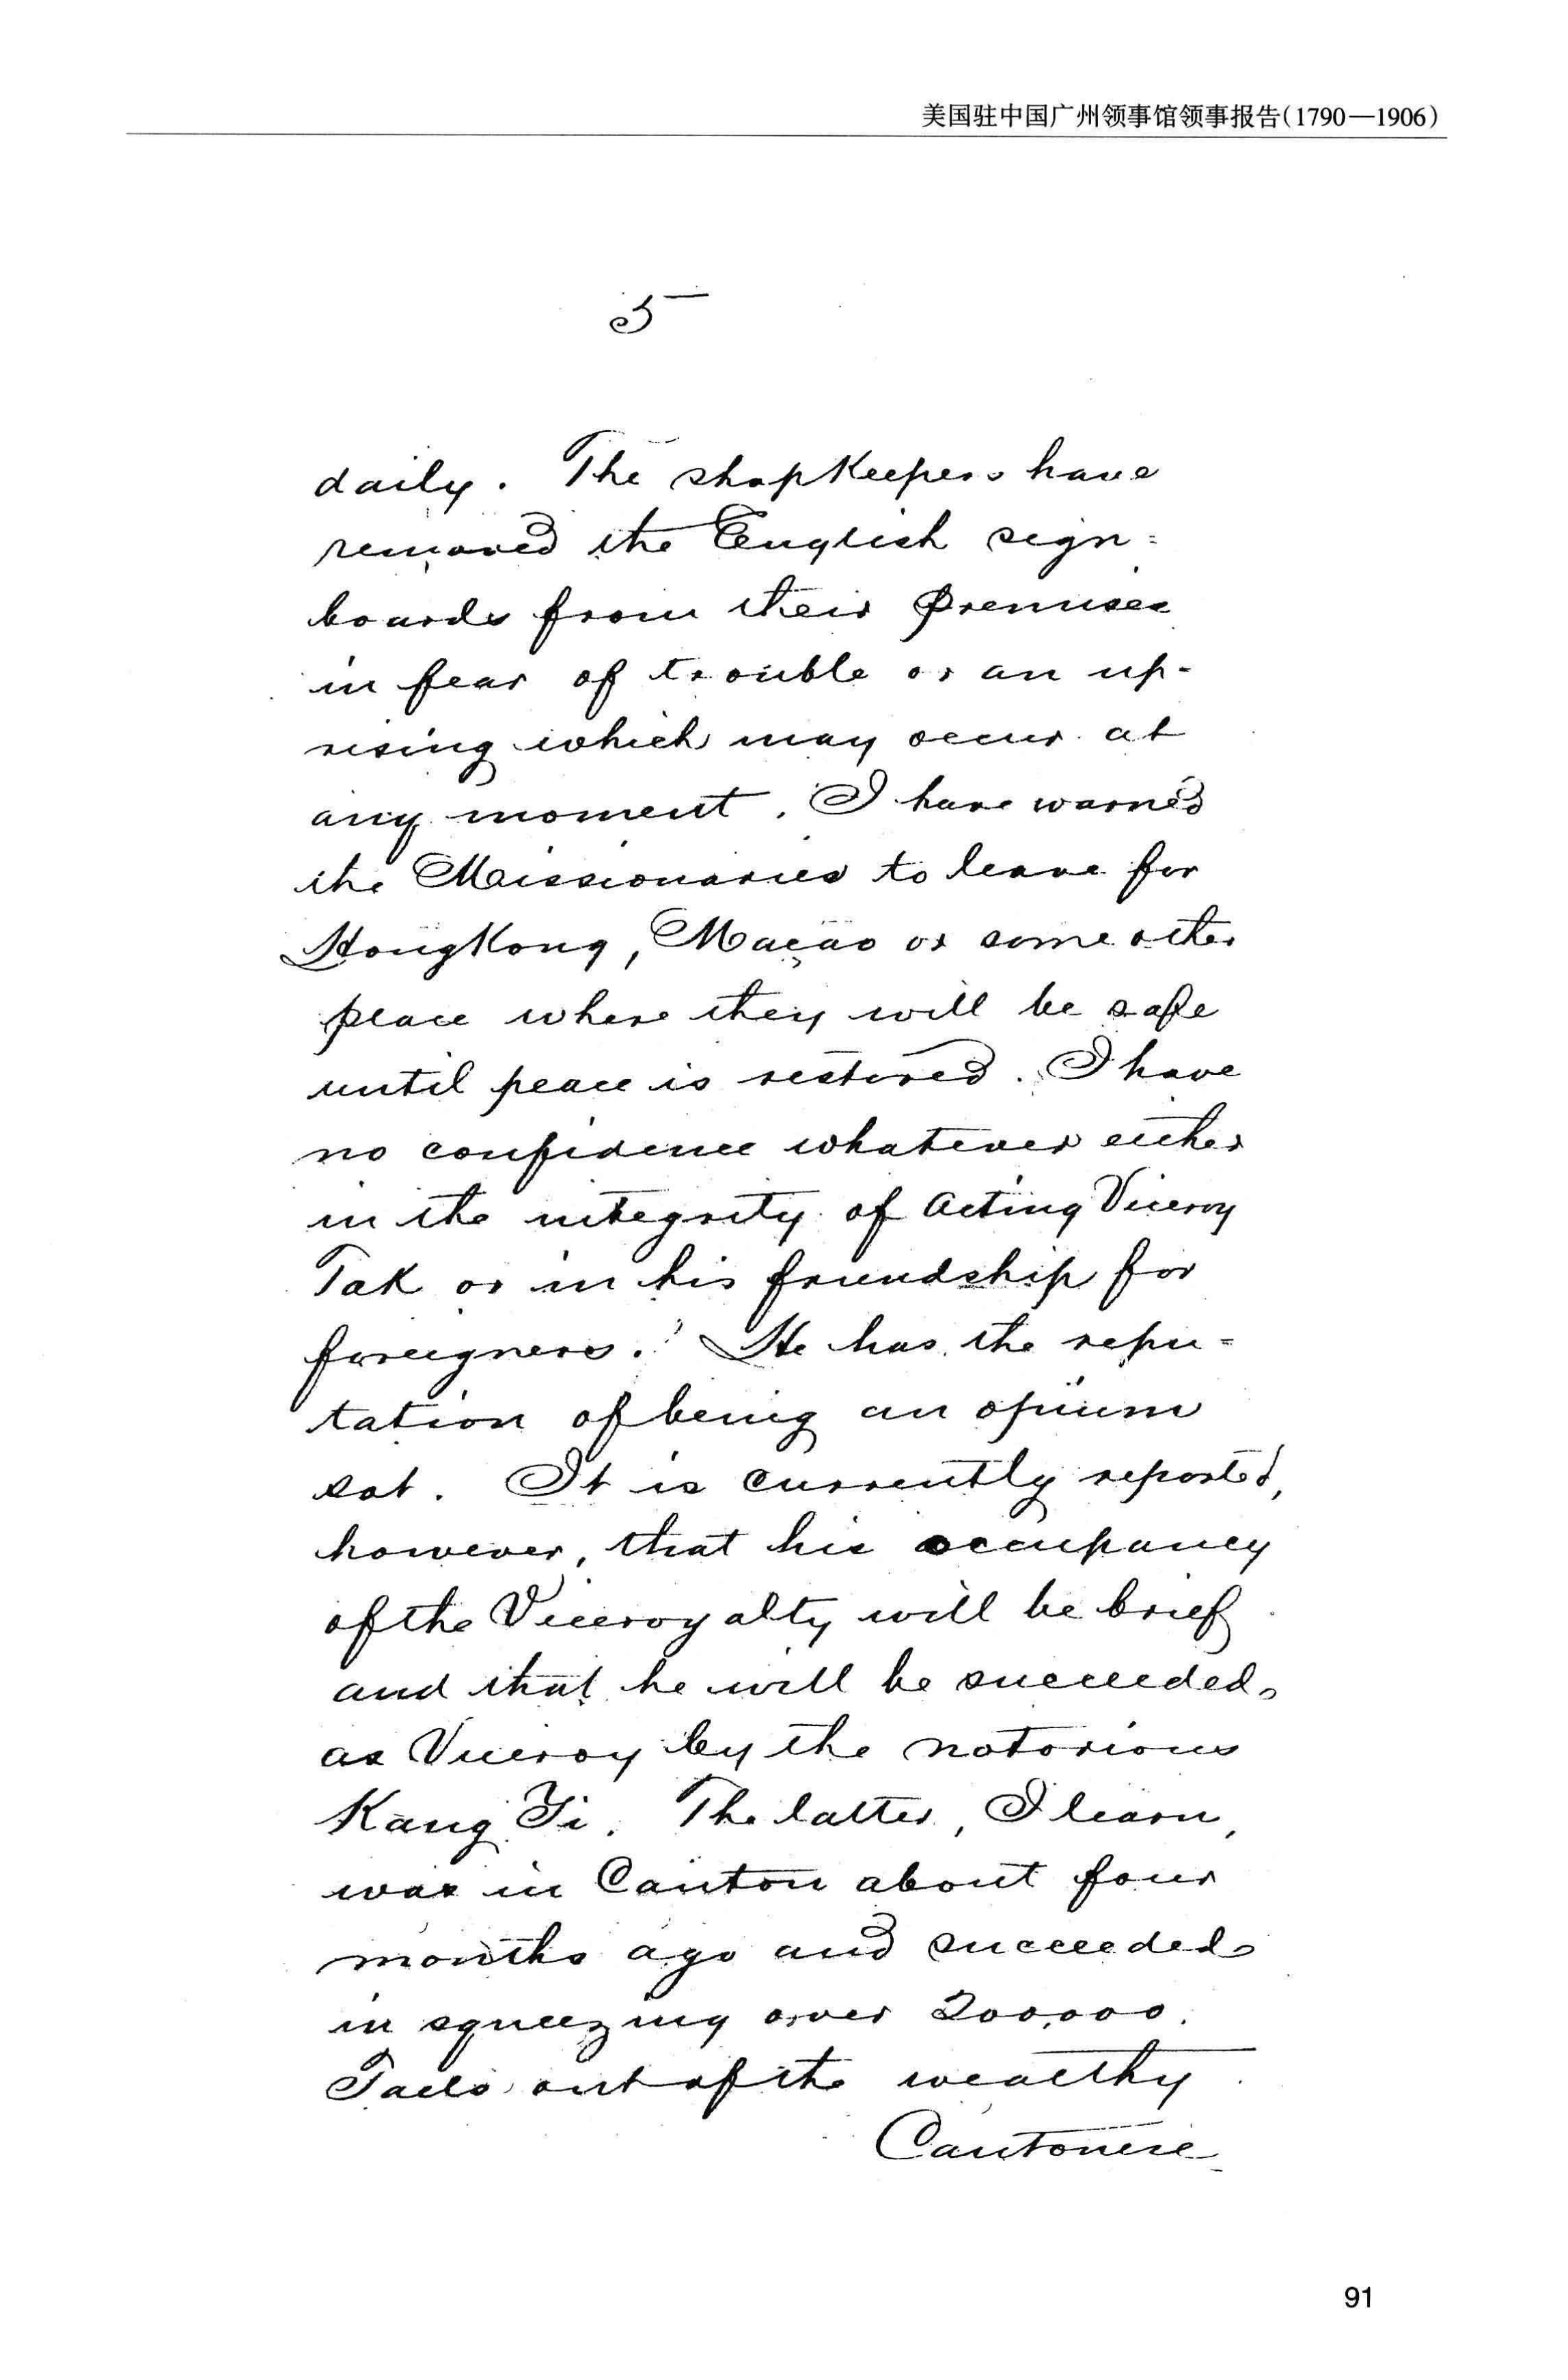 美国驻中国广州领事馆领事报告(1790—1906)
5
daily. The shopkeepers have
removed the English sign=
boards from their premises
in fear of trouble or an up-
rising which may occur at
any moment. I have warned
the Missionaries to leave for
HongKong, Maçao or some other
place where they will be safe
until peace is restored. I have
no confidence whatever either
in the integrity of Acting Viceroy
Tak or in his friendship for
foreigners. He has the repu=
tation of being an opium
sot. It is currently reported,
however, that his occupancy
of the Viceroyalty will be brief
and that he will be succeeded
as Viceroy by the notorious
Kang Yi. The latter, I learn,
was in Canton about four
months ago and succeeded
in squeezing over 200,000
Taels out of the wealthy
Cantonese
91